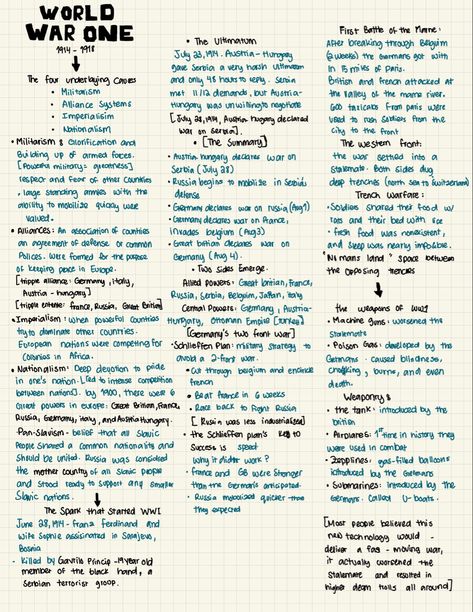 WORLD
WAR ONE
1914 - 1918
The four underlying Causes
• Militarism
• Alliance Systems
• Imperialisim
• Nationalism
• Militarism: Glorification and
Building up of armed forces.
[Powerful military = greatness]
respect and fear of other countries
, large standing armies with the
ability to mobilize quickly were
valued.
• Alliances: An association of countries
an agreement of defense or common
Polices. Were formed for the purpose
of keeping peace in Europe.
[tripple alliance: Germany, italy,
Austria - hungary]
[tripple entente: france, Russia, Great Britian]
• Imperialism: When powerful countries
try to dominate other countries.
European nations were competing for
Colonies in Africa.
• Nationalism: Deep devotion to pride
in one's nation. [led to intense competition
between nations]. by 1900, there were 6
Great powers in europe: Great Britian, France,
Russia, Germany, italy, and Austria Hungary.
Pan-Slavism- belief that all Slavic
People shared a common nationality and
Should be united. Russia was considered
the mother country of all slavic people
and stood ready to support any smaller
Slavic nations.
The Spark that started WWI
June 28, 1914- Franz Ferdinand and
Wife Sophie assisinated in Sarajevo,
Bosnia
- killed by Gavrillo Princip - 19 year old
member of the black hand, a
Serbian terrorist group.
• The Ultimatum
July 23, 1914. Austria - Hungary
gave Serbia a very harsh ultimatum
and only 48 hours to reply. Serbia
met 11/12 demands, but Austria-
Hungary was unwilling to negotiate
[July 28, 1914, Austria Hungary declared
war on Serbia].
• [The Summary]
• Austria Hungary declares war on
Serbia (July 28)
• Russia begins to mobilize in Serbia's
defense
• Germany declares war on russia (Aug 1)
• Germany declares war on france,
invades belgium (Aug 3)
• Great britian declares war on
Germany (Aug 4).
• Two sides Emerge.
Allied powers: Great britian, france,
Russia, Serbia, Belgium, Japan, italy
Central Powers: Germany, Austria-
Hungary, Ottoman Empire [Turkey]
[Germany's two front war]
• Schlieffen Plan: military strategy to
avoid a 2-front war.
• Cut through belgium and encircle
french
• Beat france in 6 weeks
• Race back to fight Russia
[Russia was less industrialised]
• the Schlieffen plan's key to
Success is speed
Why it didn't work?
• france and GB were Stronger
than the Germans anticipated.
• Russia mobolized quicker than
they expected
First Battle of the Marne:
After breaking through Belgium
(2 weeks) the Germans got with
in 15 miles of Paris.
British and french attacked at
the Valley of the marne river.
600 taxicabs from paris were
used to rush Soldiers from the
city to the front
The western front:
the war settled into a
Stalemate. Both sides dug
deep trenches (north sea to Switzerland)
Trench Warfare:
• Soldiers shared their food w/
rats and their bed with lice
• fresh food was nonexistent,
and sleep was nearly impossible.
"No mans land" space between
the opposing trenches
• the weapons of WWI
• Machine Guns: worsened the
Stalemate
• Poison Gas: developed by the
Germans. caused blindness,
choking, burns, and even
death.
Weaponry:
• the tank: introduced by the
british
• Airplanes: 1st time in history they
were used in combat
• Zepplines: gas-filled balloons
introduced by the Germans
• Submarines: introduced by the
Germans. Called U-boats.
[Most people believed this
new technology would
deliver a fast-moving war,
it actually worsened the
Stalemate and resulted in
higher death tolls all around]